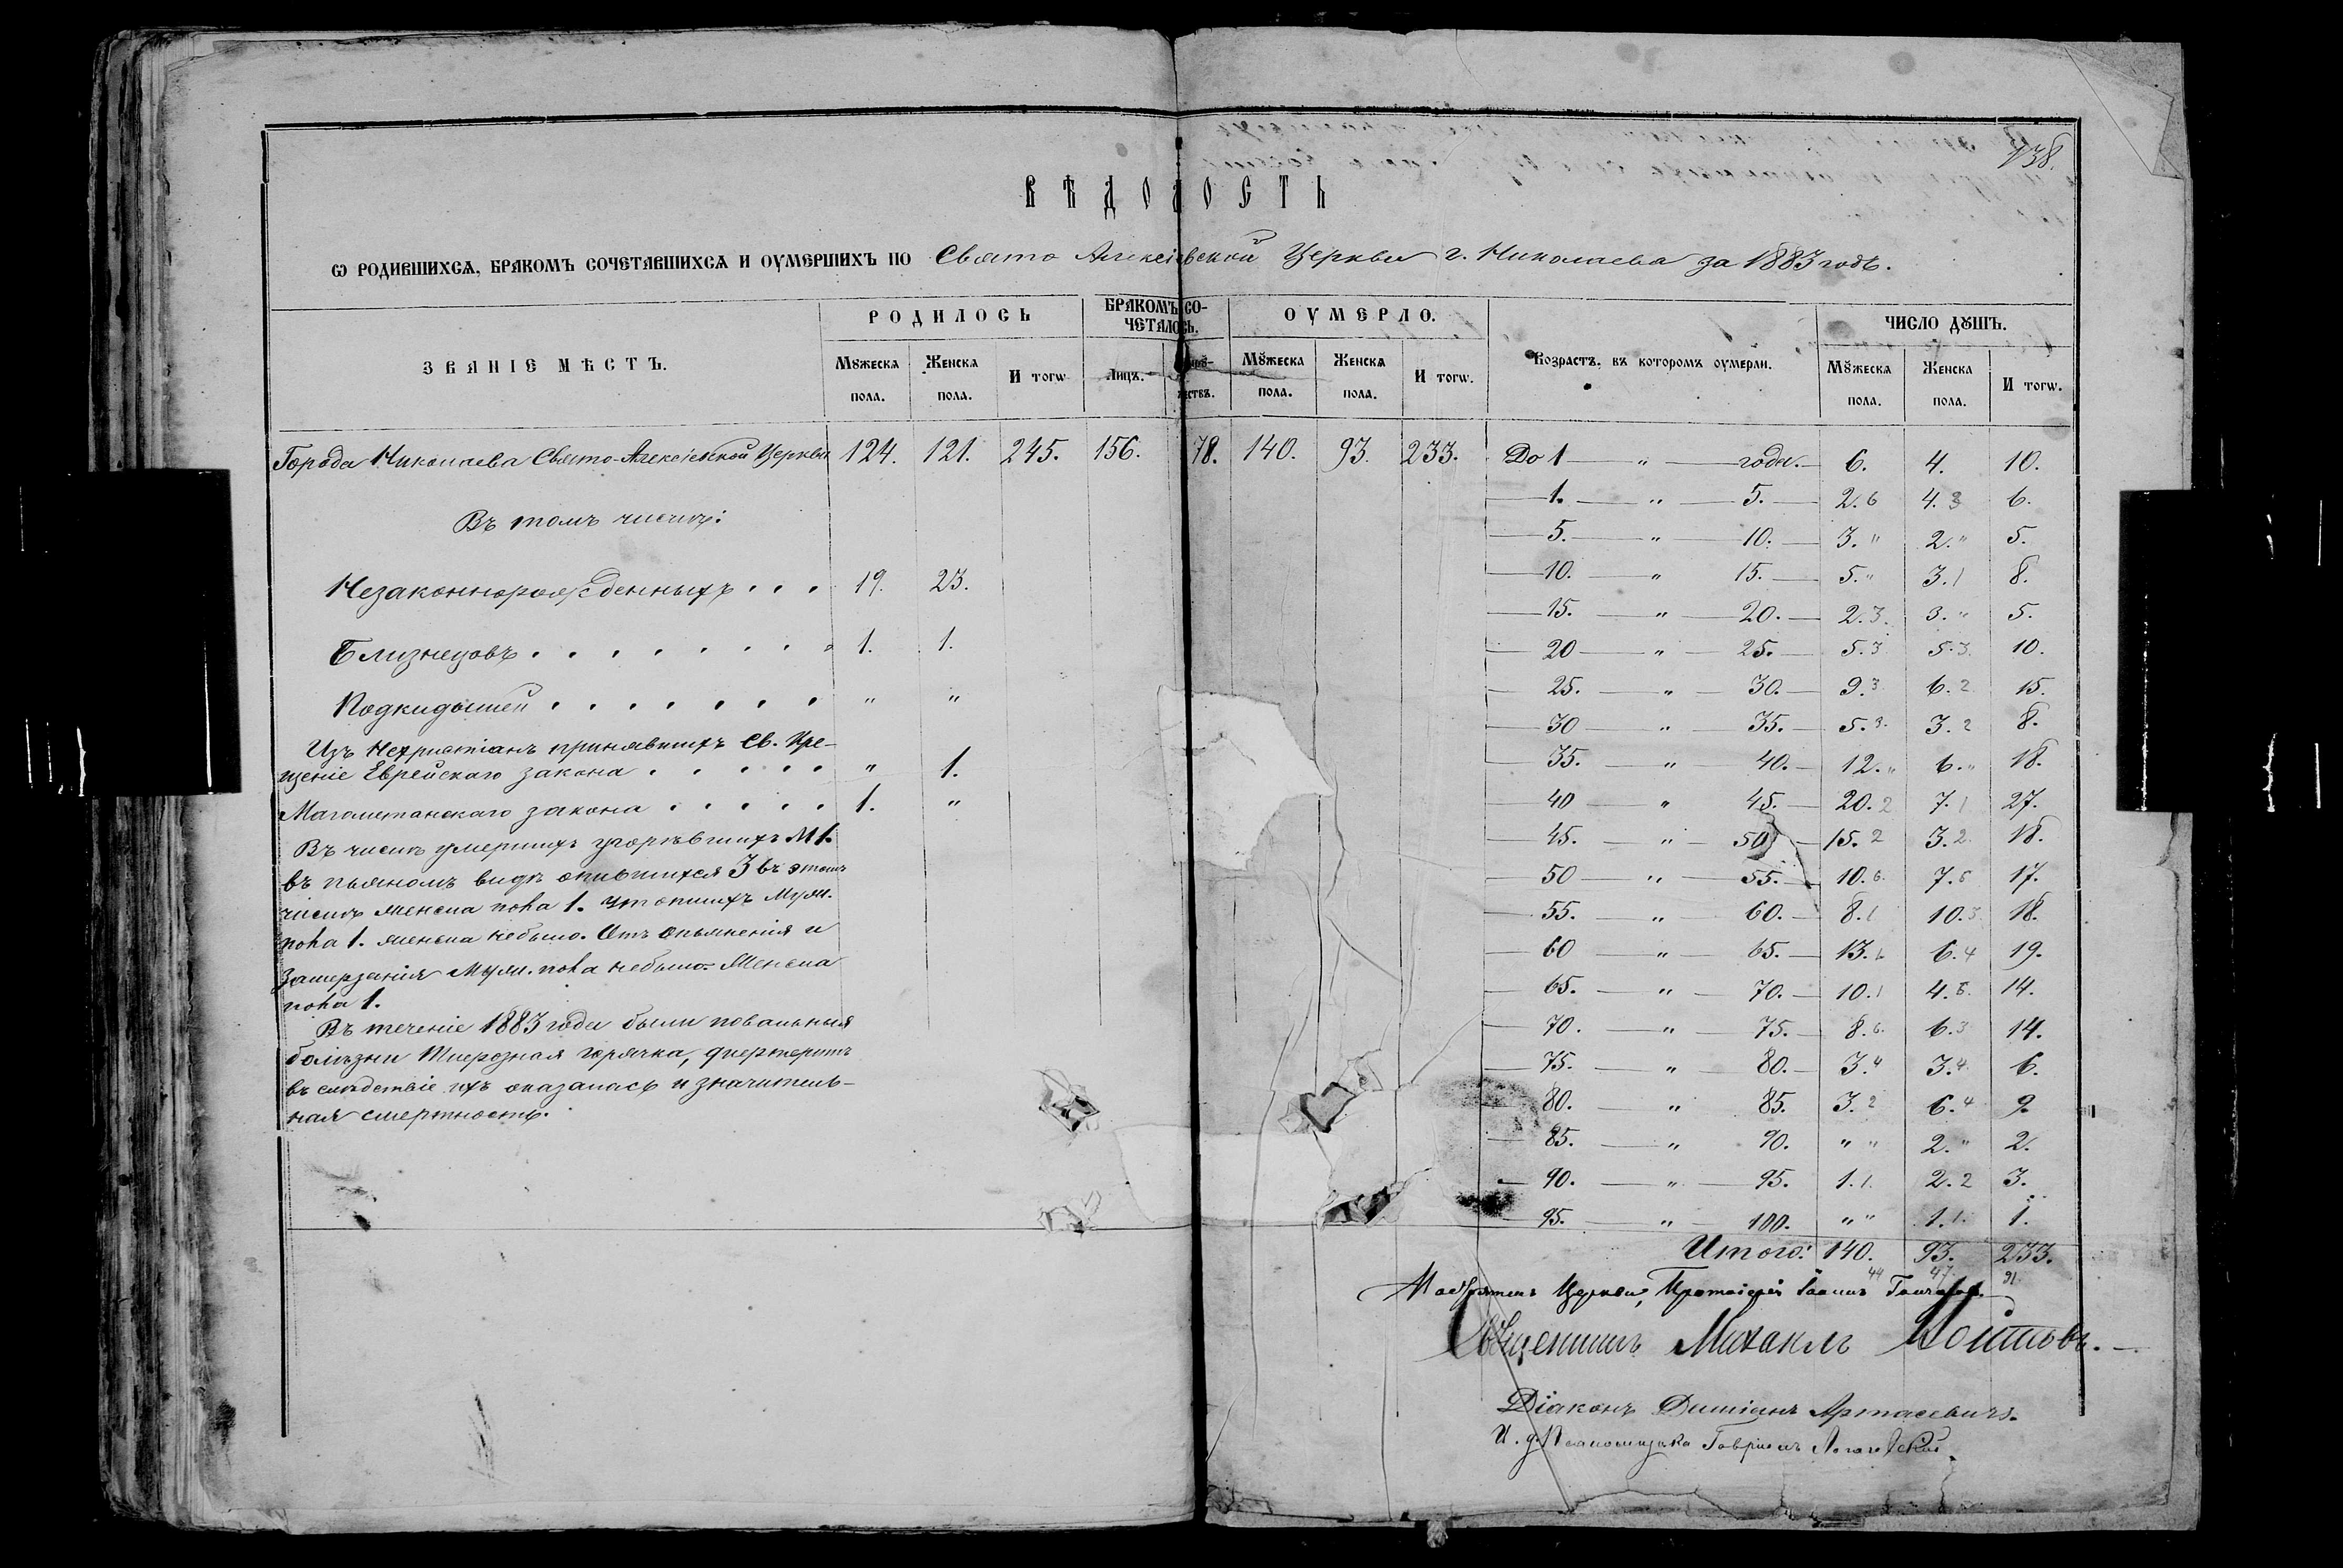 138.
ВѢДОМОСТЬ
Ѡ РОДИВШИХСѦ, БРАКОМЪ СОЧЕТАВШИХСѦ И ОУМЕРШИХЪ ПО Свято Алексіевской Церкви г. Николаева за 1883 годъ.
ЗВАНІЕ МѢСТЪ. РОДИЛОСЬ БРАКОМЪ СО- ОУМЕРЛО. Возрастъ, въ которомъ оумерли. ЧИСЛО ДꙊШЪ.
ЧЕТАЛОСЬ.
Мꙋжеска Женска И тогѡ Лицъ. Мꙋжеска Женска И тогѡ. Мꙋжеска Женска И тогѡ.
пола. пола. пола. пола. пола. пола.
Города Николаева Свято-Алексіевской Церкви 124. 121. 245. 156. 78. 140. 93. 233. До 1 — „ — года. — 6. 4. 10.
— 1. — „ — 5. — 2. 6 4. 3 6.
Въ томъ числѣ:
— 5. — „ — 10. — 3. „ 2. „ 5.
— 10. — „ 15. — 5. „ 3. 1 8.
Незаконнорожденныхъ . . . 19. 23.
— 15. — „ — 20. — 2. 3. 3. „ 5.
Близнецовъ . . . . . . . 1. 1.
— 20 — „ — 25. — 5. 3 5. 3. 10.
— 25. — „ — 30. — 9. 3 6. 2 15.
Подкидышей . . . . . . . „ „
— 30 „ — 35. — 5. 3. 3. 2 8.
Изъ Нехристіанъ принявшихъ Св. Кре-
— 35. — „ — 40. — 12. „ 6. „ 18.
щеніе Еврейскаго закона . . . . . „ 1.
— 40 — „ — 45. — 20. 2 7. 1 27.
Магометанскаго закона . . . . . 1. „
— 45. — „ — 50 — 15. 2 3. 2. 18.
Въ числѣ умершихъ угорѣвшихъ М 1.
— 50 — „ — 55. — 10. 6. 7. 5 17.
въ пьяномъ видѣ опившихся 3 въ этомъ
числѣ женска пола 1. утопшихъ Муж.
— 55. — „ — 60. — 8. 1 10. 3. 18.
пола 1. женска небыло. Отъ опьяненія и
— 60 — „ — 65. — 13. 6 6. 4 19.
замерзанія Муж. пола небыло. Женска
— 65. — „ — 70. — 10. 1 4. 5. 14.
пола 1.
Въ теченіе 1883 года были повальныя
— 70. — „ — 75. — 8. 6. 6. 3 14.
болѣзни горячка, дифтеритъ
— 75. — „ — 80. — 3. 4 3. 4. 6.
въ слѣдствіе ихъ оказалась и значитель-
— 80. — „ 85. 3. 2 6. 4 9.
ная смертность.
— 85. — „ — 90. „ „ 2. „ 2.
— 90. — „ — 95. 1. 1. 2. 2 3.
— 95. — „ — 100. „ „ 1. 1. 1.
Итого: 140. 93. 233.
44 47 91
Настоятель Церкви, Протоіерей Іоаннъ
Священникъ Михаилъ
Діаконъ Даміанъ Артасевичъ.
И. д. Псаломщика Гавріилъ